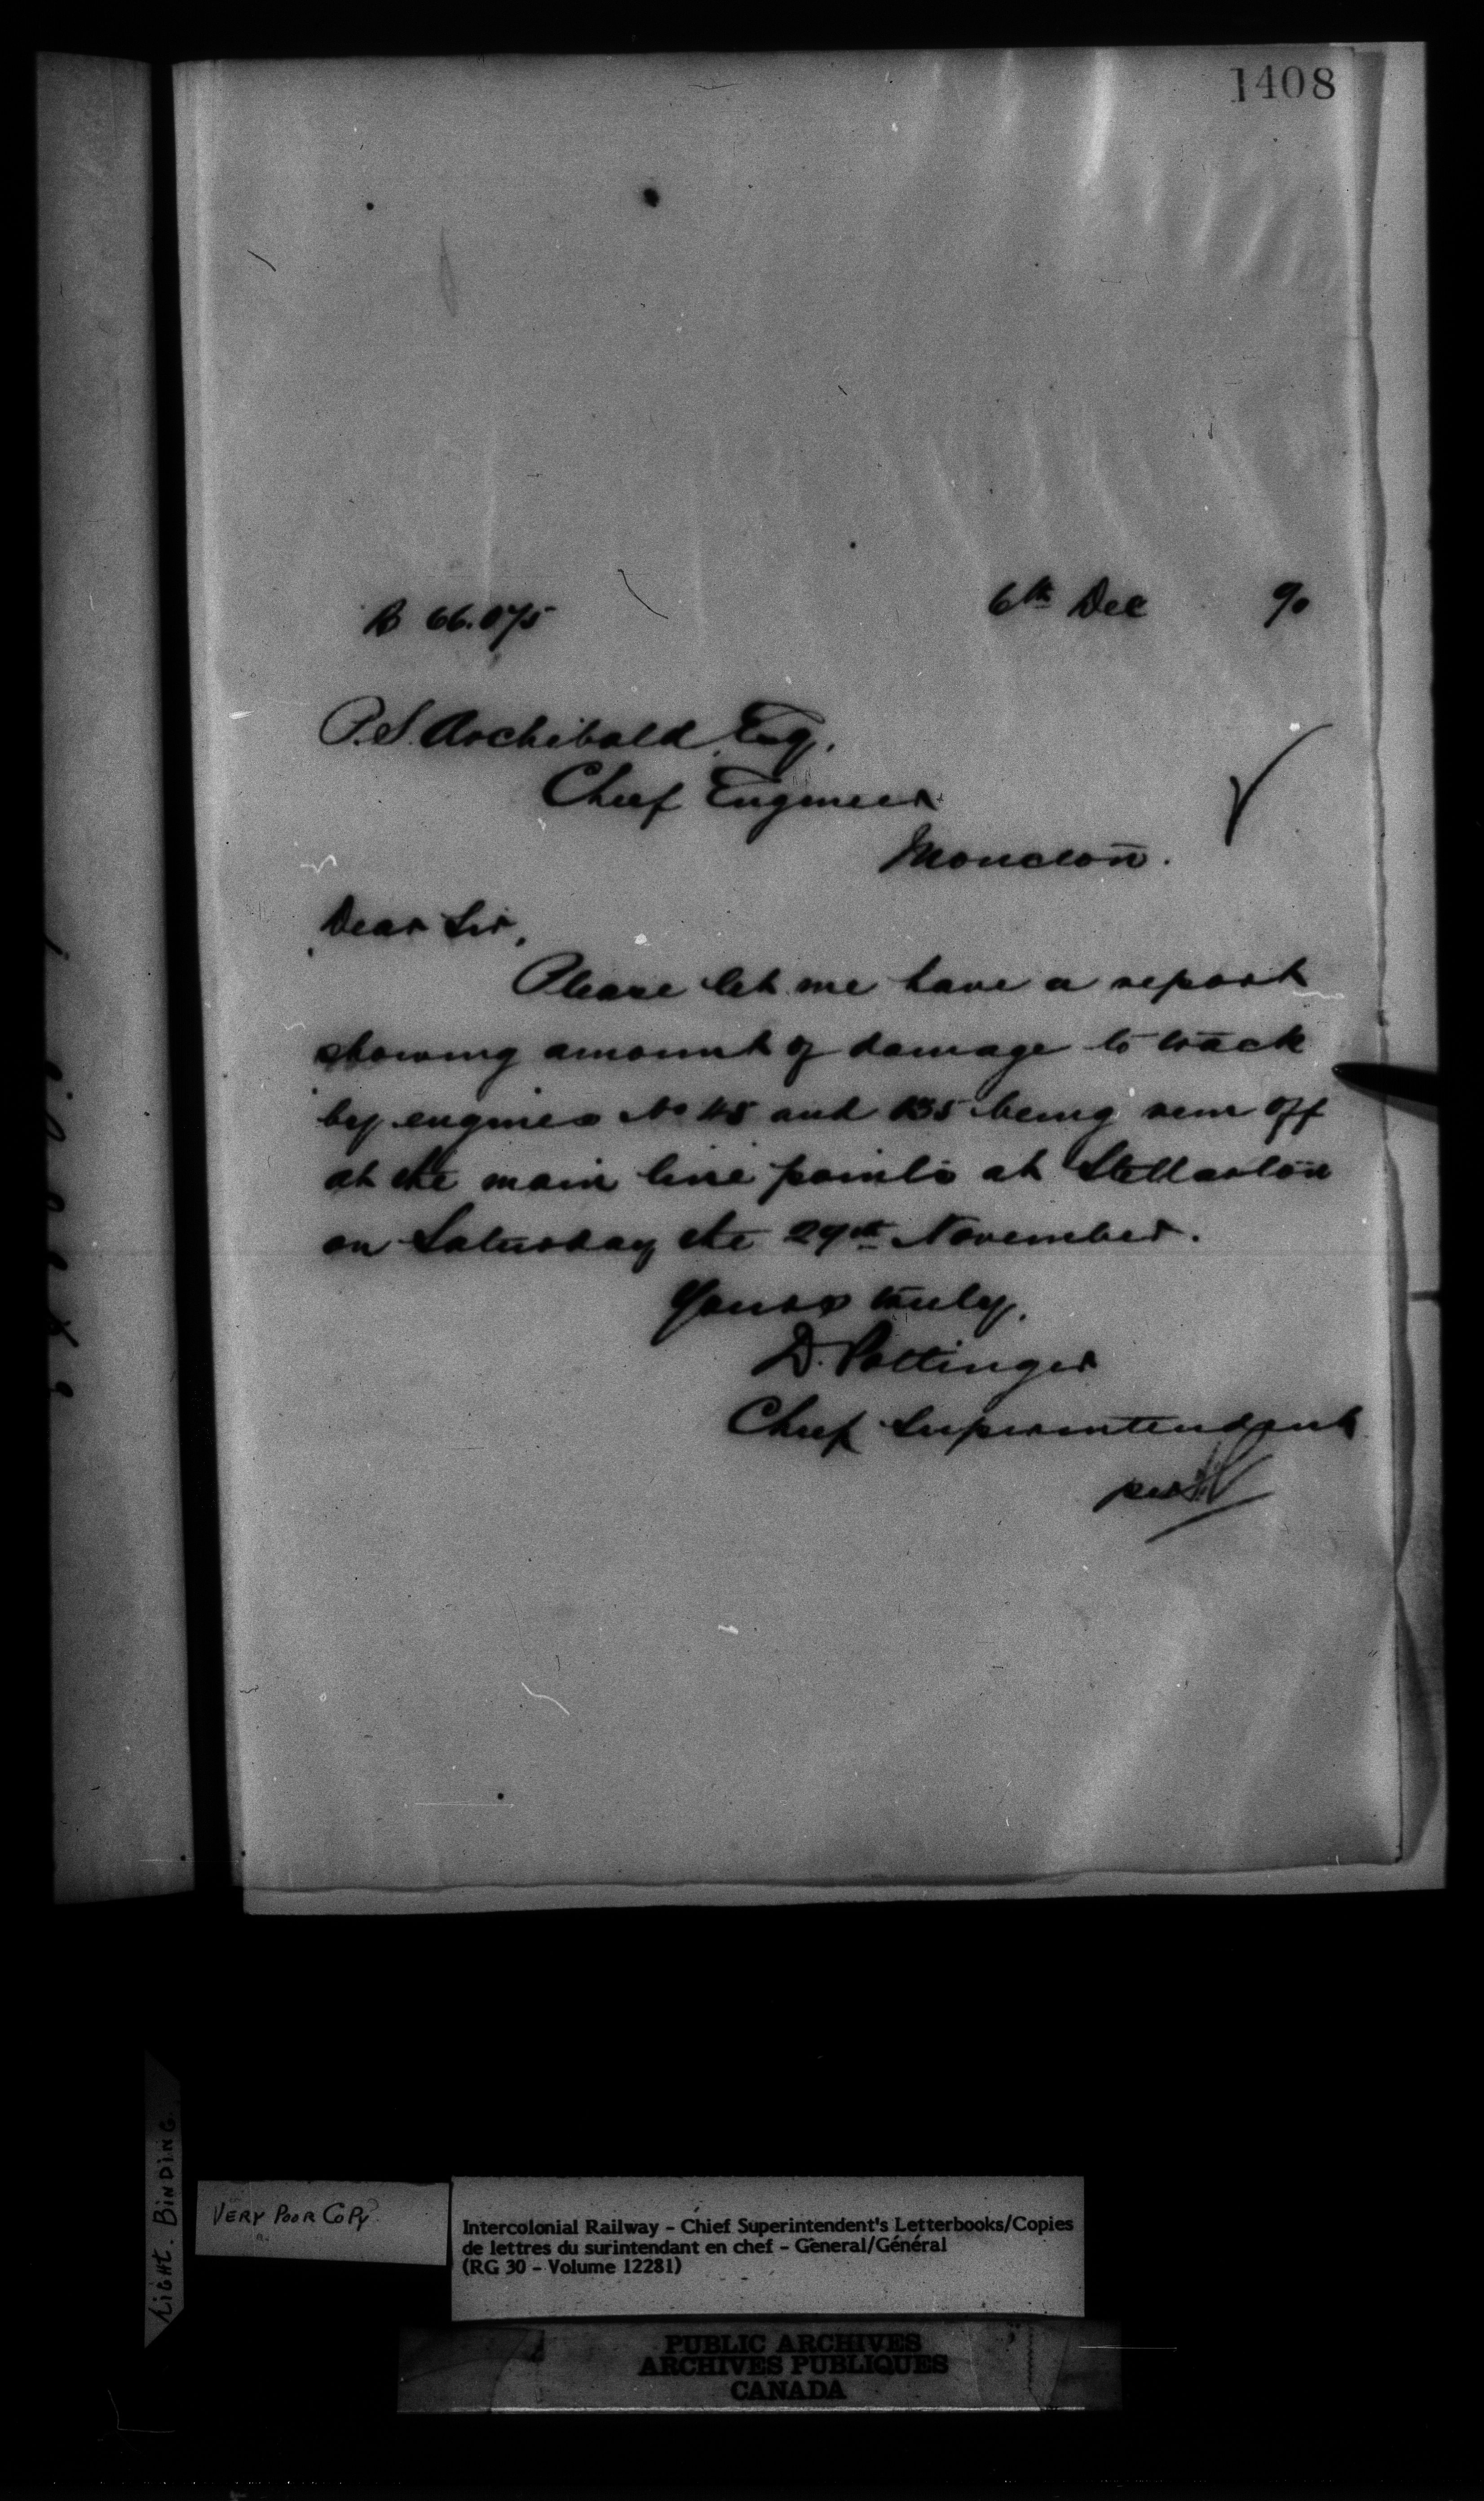 1408
B 66.075
6th Dec 90
P.S. Archibald Esq.
Chief Engineer
Moncton.
Dear Sir,
Please let me have a report
showing amount of damage to track
by engines No 45 and 135 being run off
at the main line points at Stellarton
on Saturday the 29th November.
Yours truly,
D. Pottinger
Chief Superintendent
per
LIGHT. BINDING
VERY POOR COPY
Intercolonial Railway - Chief Superintendent's Letterbooks/Copies
de lettres du surintendant en chef - General/Général
(RG 30 - Volume 12281)
PUBLIC ARCHIVES
ARCHIVES PUBLIQUES
CANADA